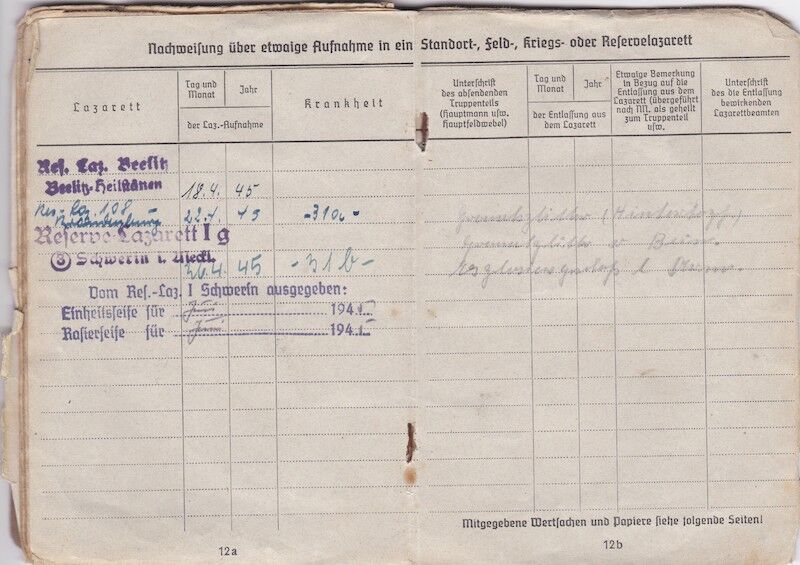 Nachweisung über etwaige Aufnahme in ein Standort-, Feld-, Kriegs- oder Reservelazarett
Lazarett
Tag und Monat
Jahr
der Laz.-Aufnahme
Krankheit
Unterschrift
des absendenden
Truppenteils
(Hauptmann usw.
Hauptfeldwebel)
Tag und
Monat
Jahr
der Entlassung aus
dem Lazarett
Etwaige Bemerkung
in Bezug auf die
Entlassung aus dem
Lazarett (übergeführt
nach N., als geheilt
zum Truppenteil
usw.
Unterschrift
des die Entlassung
bewirkenden
Lazarettbeamten
Res. Laz. Beelitz
Beelitz-Heilstätten 18.4. 45
Res.-Laz. 108 22.4. 45
Reserve-Lazarett I g
Schwerin i. Meckl. 26.4. 45 -31b-
Vom Res.-Laz. I Schwerin ausgegeben:
Einheitsseife für 194
Rasierseife für 194
Mitgegebene Wertsachen und Papiere siehe folgende Seiten!
12a
12b